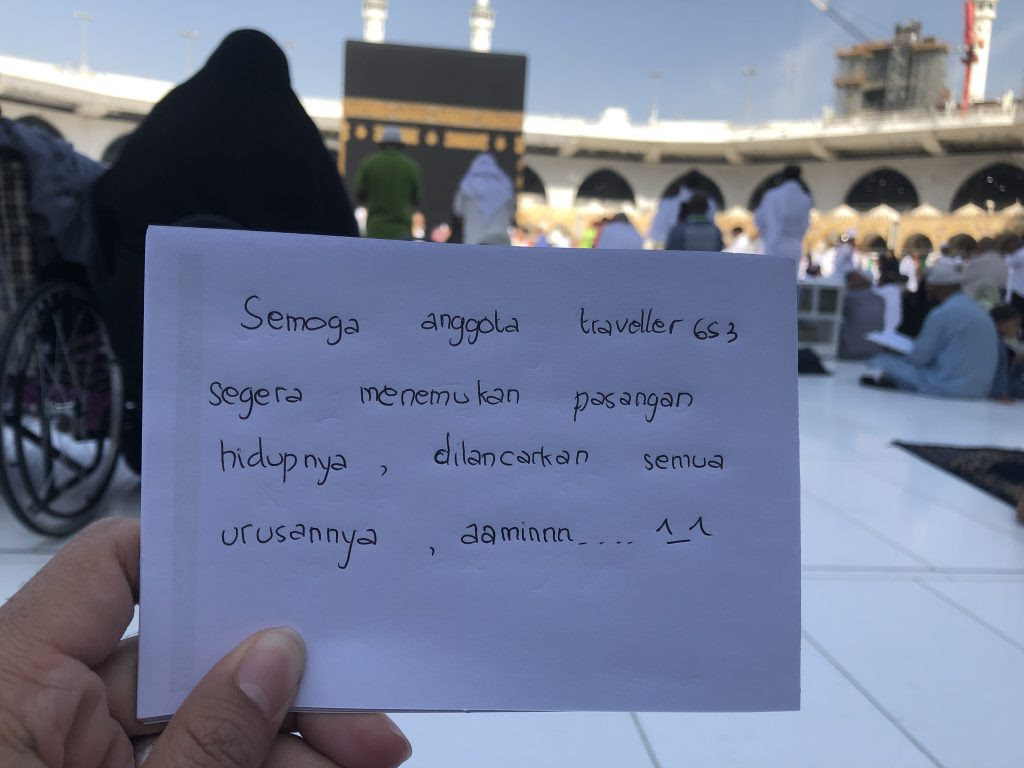 Semoga anggota traveller 6s3
segera menemukan pasangan
hidupnya, dilancarkan semua
urusannya, aaminnn.... ^_^